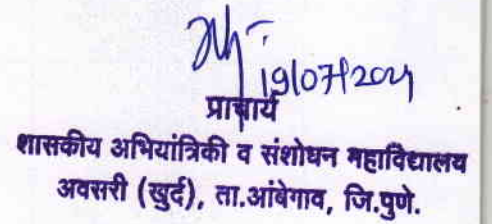 19/07/2021
प्राचार्य
शासकीय अभियांत्रिकी व संशोधन महाविद्यालय
अवसरी (खुर्द), ता.आंबेगाव, जि.पुणे.